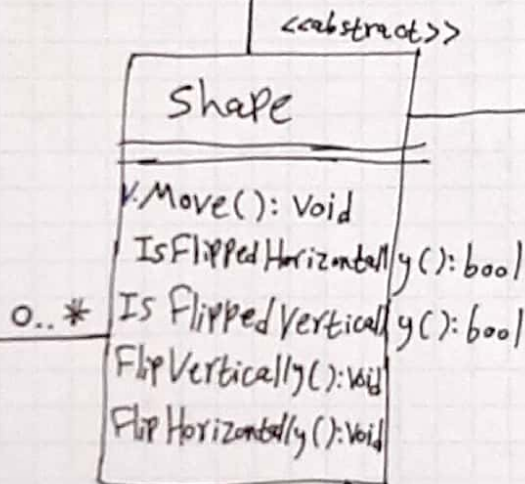 <<abstract>>
Shape
V.Move(): Void
IsFlippedHorizontally(): bool
0..* Is FlippedVertically(): bool
FlipVertically():Void
FlipHorizontally():Void